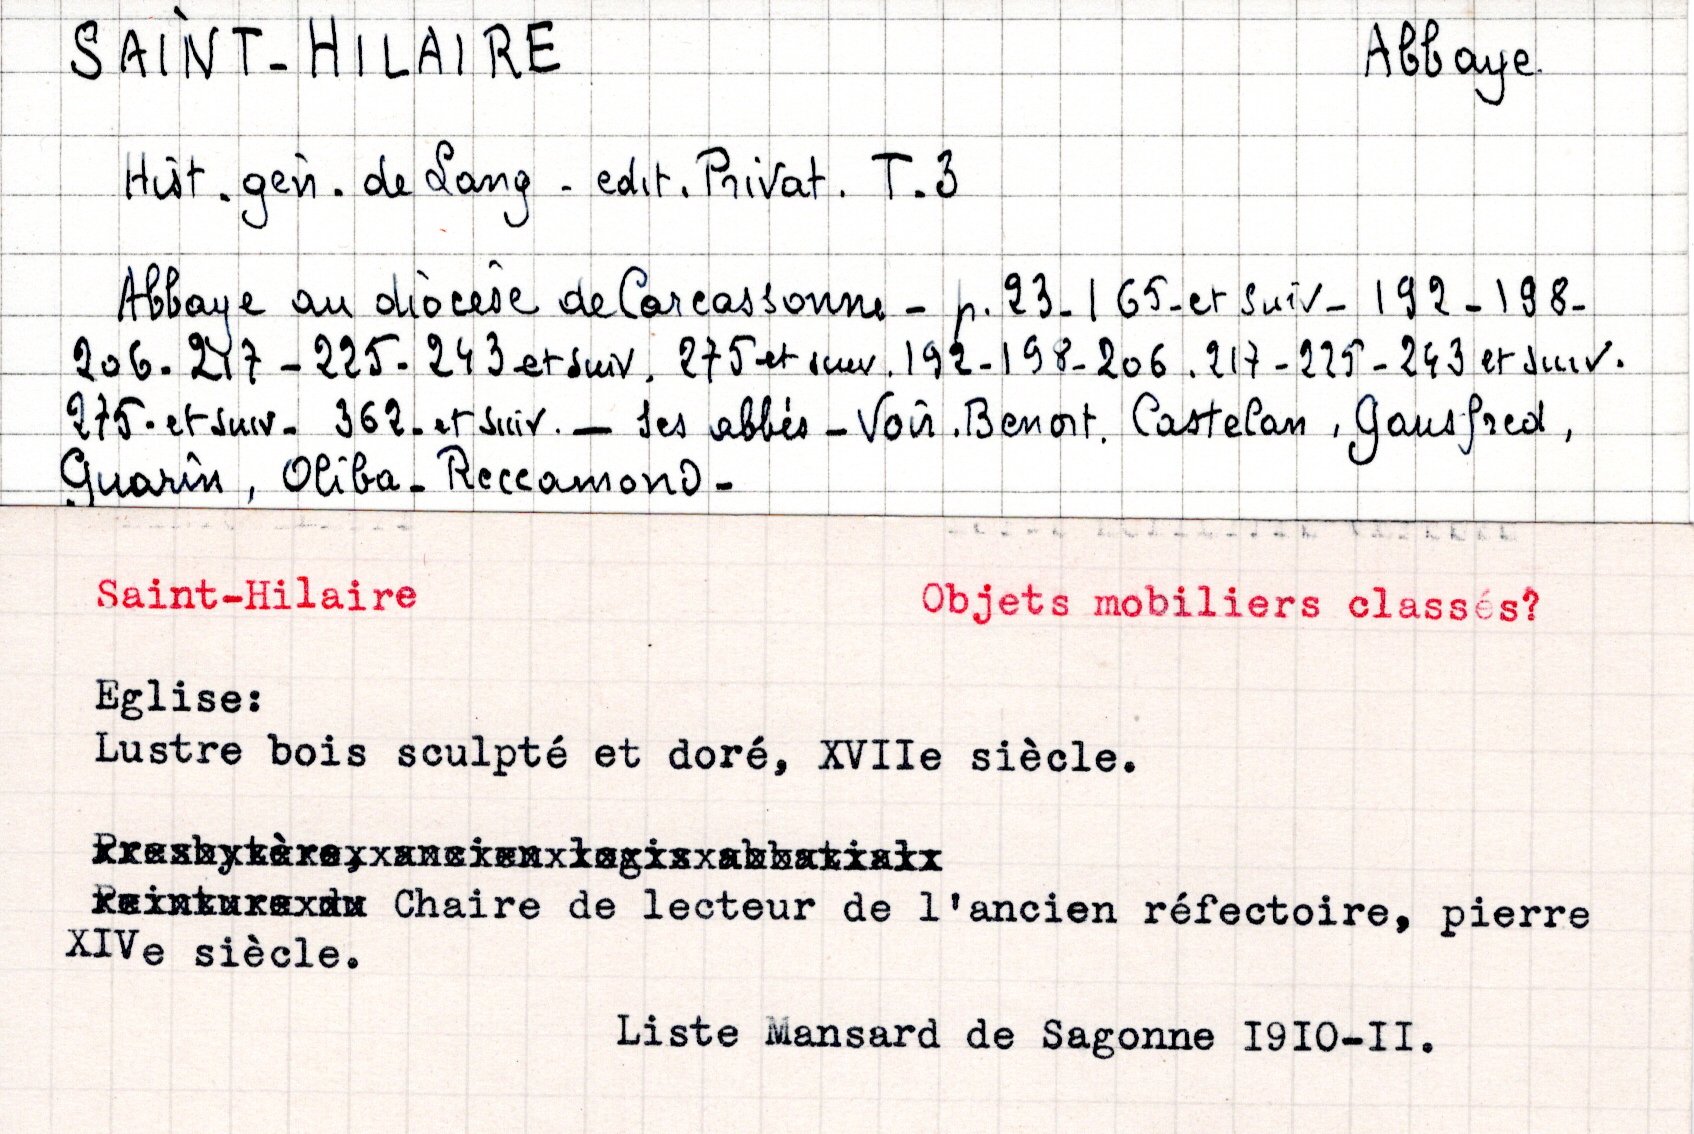 SAINT-HILAIRE Abbaye.
Hist. gén. de Lang - edit. Privat. T.3
Abbaye au diocèse de Carcassonne - p. 23-165-et suiv- 192-198-
206-217-225-243 et suiv. 275 et suiv. 192-198-206.217-225-243 et suiv.
275-et suiv- 362-et suiv. - ses abbés - Voir. Benoit. Castelan, Gausfred,
Guarin, Oliba- Reccamond-
Saint-Hilaire Objets mobiliers classés?
Eglise:
Lustre bois sculpté et doré, XVIIe siècle.
Presbytère, ancien logis abbatial
Peinture du Chaire de lecteur de l'ancien réfectoire, pierre
XIVe siècle.
Liste Mansard de Sagonne I9I0-II.